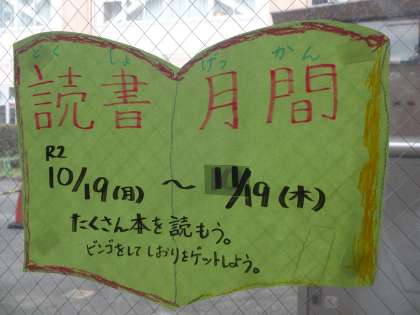 どくしょ げっかん
読書月間
R2
10/19(月) ～ 11/19(木)
たくさん本を読もう。
ビンゴをして しおりをゲットしよう。